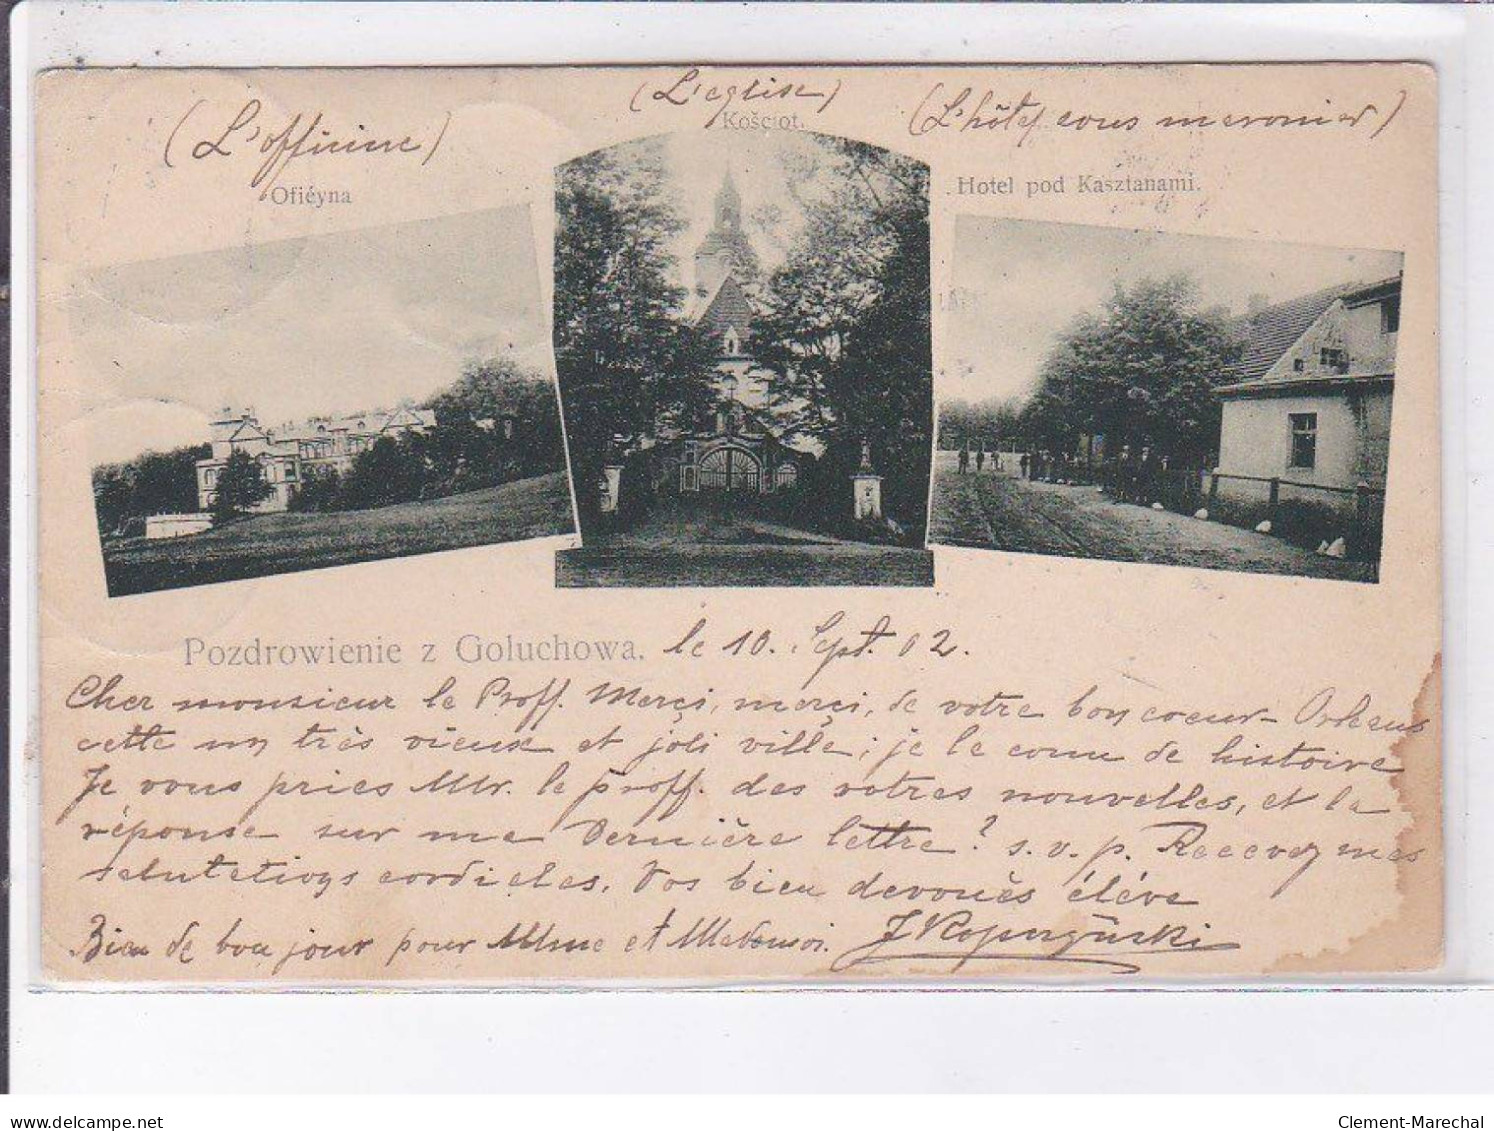 (L'officine)
(L'eglise)
(L'hôtel sous maronier)
Kościoł.
Ofiéyna
Hotel pod Kasztanami.
Pozdrowienie z Goluchowa. le 10. Sept. 02.
Cher monsieur le Proff. Merçi, merçi, de votre bon coeur - Orleans
cette un très vieux et joli ville; je le connu de histoire
Je vous pries Mr. le proff. des votres nouvelles, et la
réponse sur ma dernière lettre? s.v.p. Recevez mes
salutations cordiales. Vos bien devouès élève
Bien de bon jour pour Mme et Madmoi.
delcampe.net
Clement-Marechal